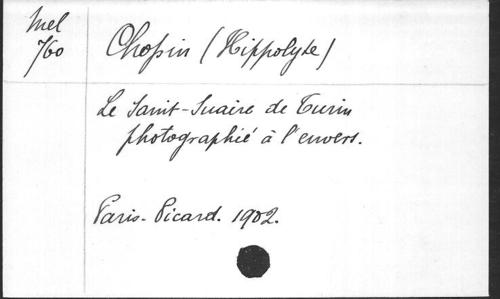 Mel
760
Chopin (Hippolyte)
Le Saint-Suaire de Turin
photographié à l'envers.
Paris - Picard. 1902.